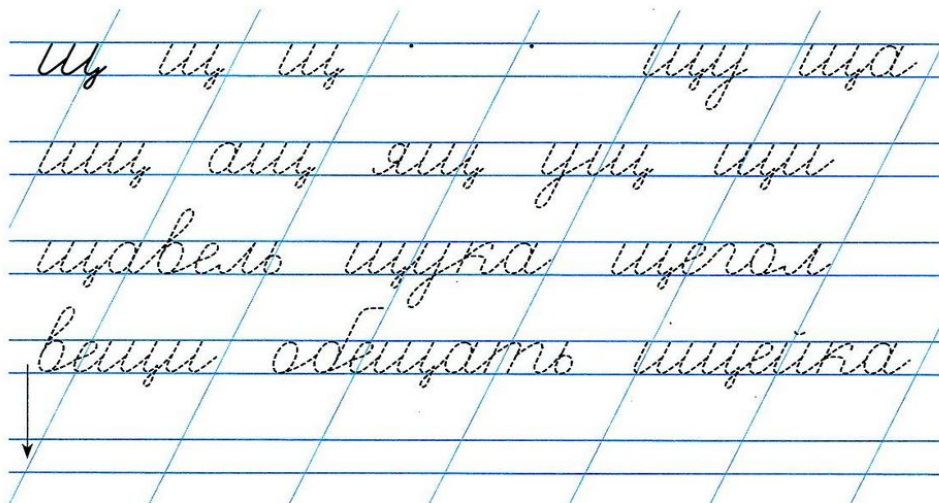 щ щ щ щу ща
ищ ащ ящ ущ щи
щавель щука щегол
вещи обещать ищейка